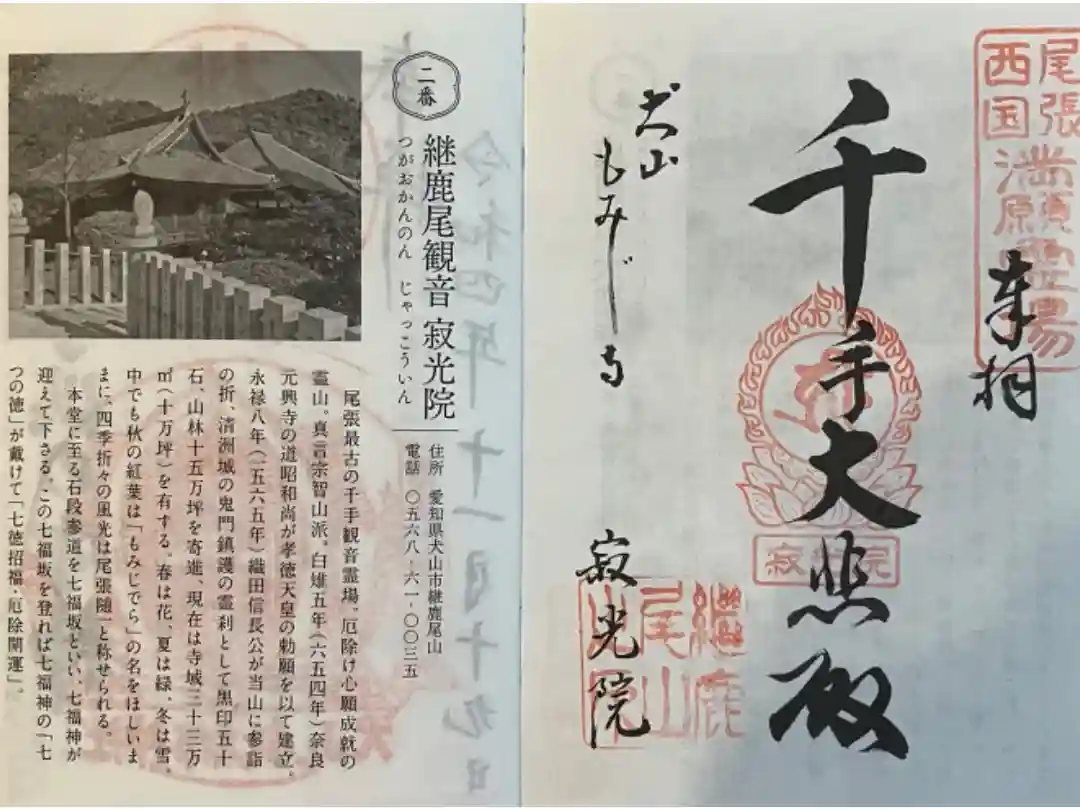 尾張
西国
満願霊場
奉拝
千手大悲殿
寂光院
継鹿
尾山
犬山
もみじでら
寂光院
二番
継鹿尾観音 寂光院
つがおかんのん じゃっこういん
住所 愛知県犬山市継鹿尾山
電話 〇五六八-六一-〇〇三五
尾張最古の千手観音霊場。厄除け心願成就の
霊山。真言宗智山派。白雉五年(六五四年)奈良
元興寺の道昭和尚が孝徳天皇の勅願を以て建立。
永禄八年(一五六五年)織田信長公が当山に参詣
の折、清洲城の鬼門鎮護の霊刹として黒印五十
石、山林十五万坪を寄進、現在は寺域三十三万
㎡(十万坪)を有する。春は花、夏は緑、冬は雪。
中でも秋の紅葉は「もみじでら」の名をほしいま
まに、四季折々の風光は尾張随一と称せられる。
本堂に至る石段参道を七福坂といい、七福神が
迎えて下さる。この七福坂を登れば七福神の「七
つの徳」が戴けて「七徳招福・厄除開運」。
令和四年十一月十九日